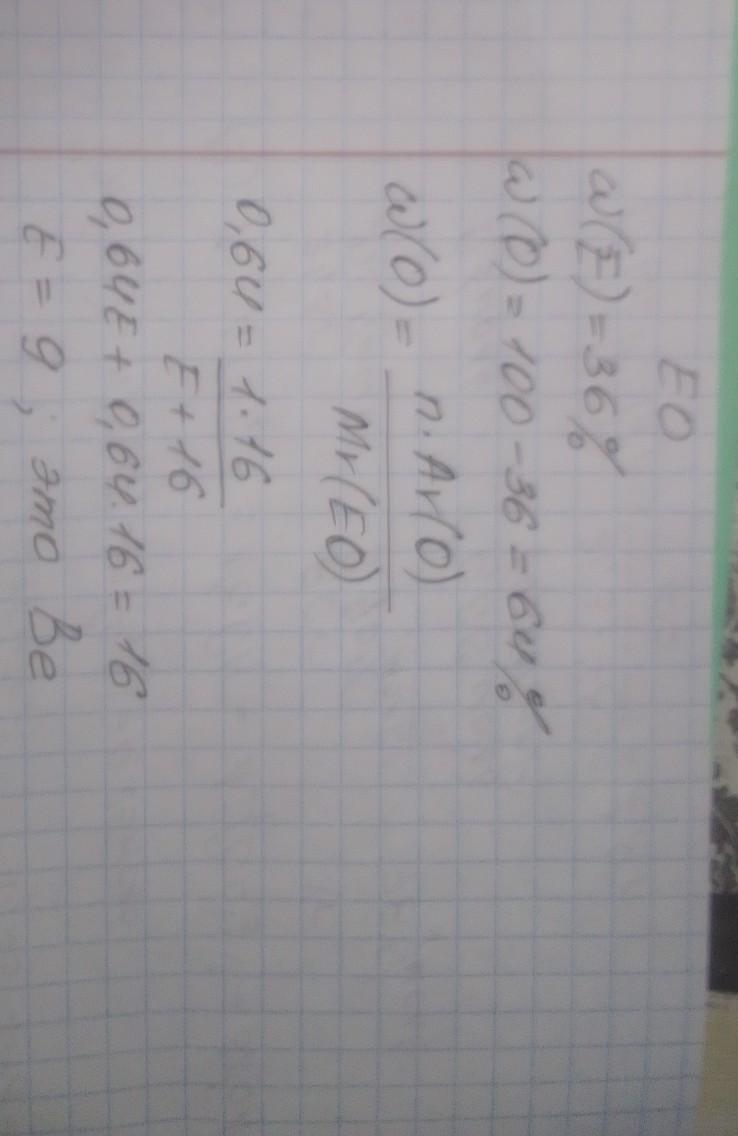 EO
w(E) = 36%
w(O) = 100 - 36 = 64%
w(O) = n·Ar(O) / Mr(EO)
0,64 = 1·16 / E + 16
0,64E + 0,64·16 = 16
E = 9; это Be